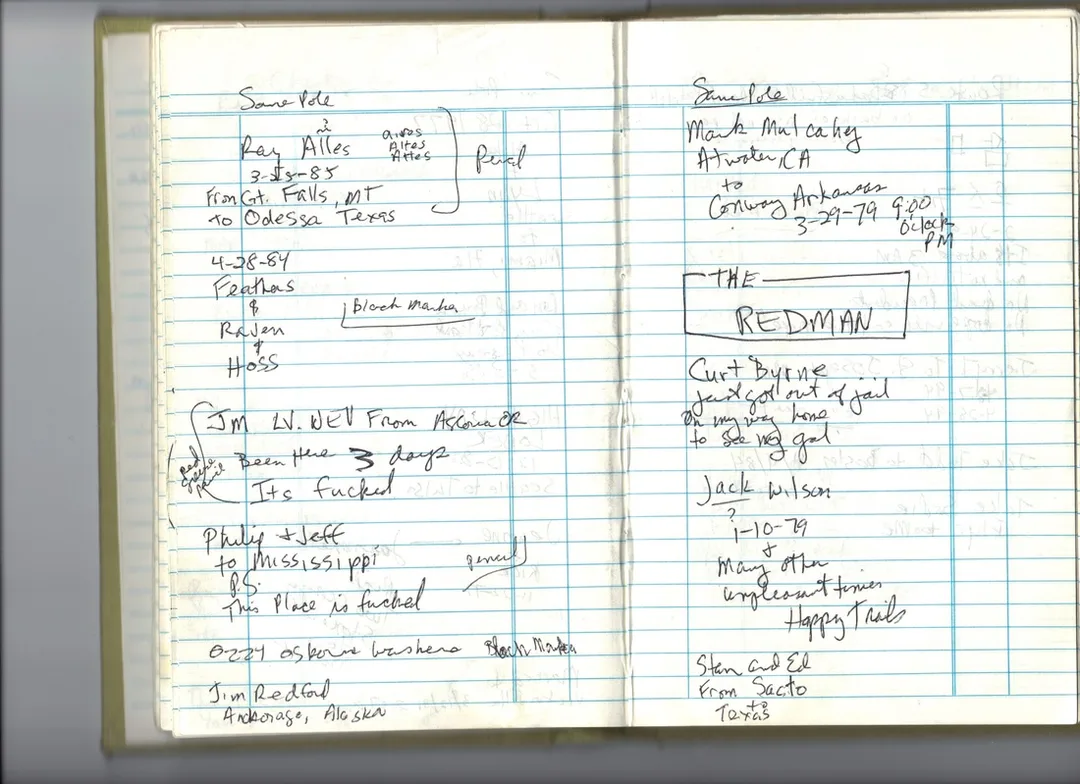 Same Pole
?
Ray Alles
aires
Altes
Attes
Pencil
3-13-85
From Gt. Falls, MT
to Odessa Texas
4-28-84
Feathers
&
Raven
&
Hoss
Black Marker
JM LV. NEV From Astoria OR
Been Here 3 days
Its fucked
red
grease
pencil
Philip & Jeff
to Mississippi
P.S.
This Place is fucked
pencil
Ozzy osborne was here Black Marker
Jim Redford
Anchorage, Alaska
Same Pole
Mark Mulcahey
Atwater, CA
to
Conway Arkansas
3-29-79 9:00
O'clock
PM
THE
REDMAN
Curt Byrne
just got out of jail
On my way home
to see my gal
Jack Wilson
?
1-10-79
&
Many other
unpleasant times
Happy Trails
Stan and Ed
From Sacto
to
Texas